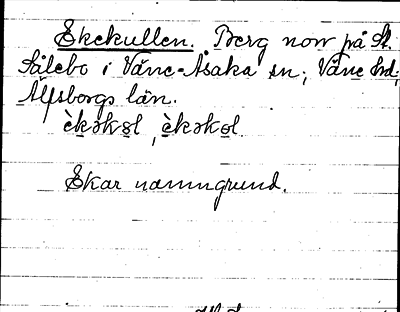 Ekekullen. Berg norr på St.
Sälebo i Väne-Åsaka sn, Väne hd,
Älfsborgs län.
è̱kəkol, è̱kəkol.
Ekar namngrund.